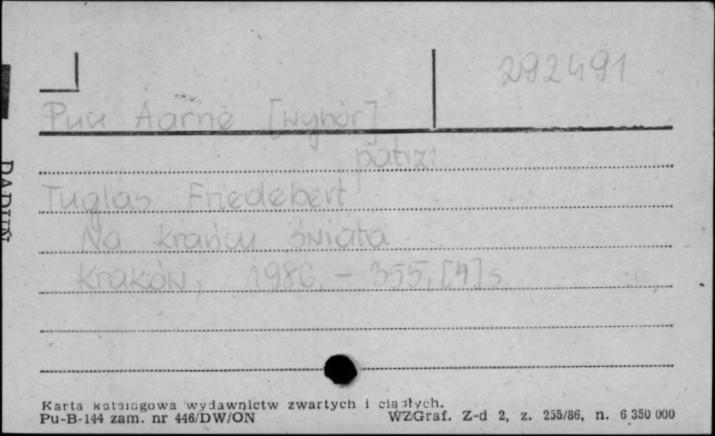 292491
Puu Aarne [wybór]
patrz:
Tuglas Friedebert
Na krańcu świata
Kraków, 1986. - 355, [4] s.
Karta katalogowa wydawnictw zwartych i ciągłych.
Pu-B-144 zam. nr 446/DW/ON WZGraf. Z-d 2, z. 255/86, n. 6 350 000